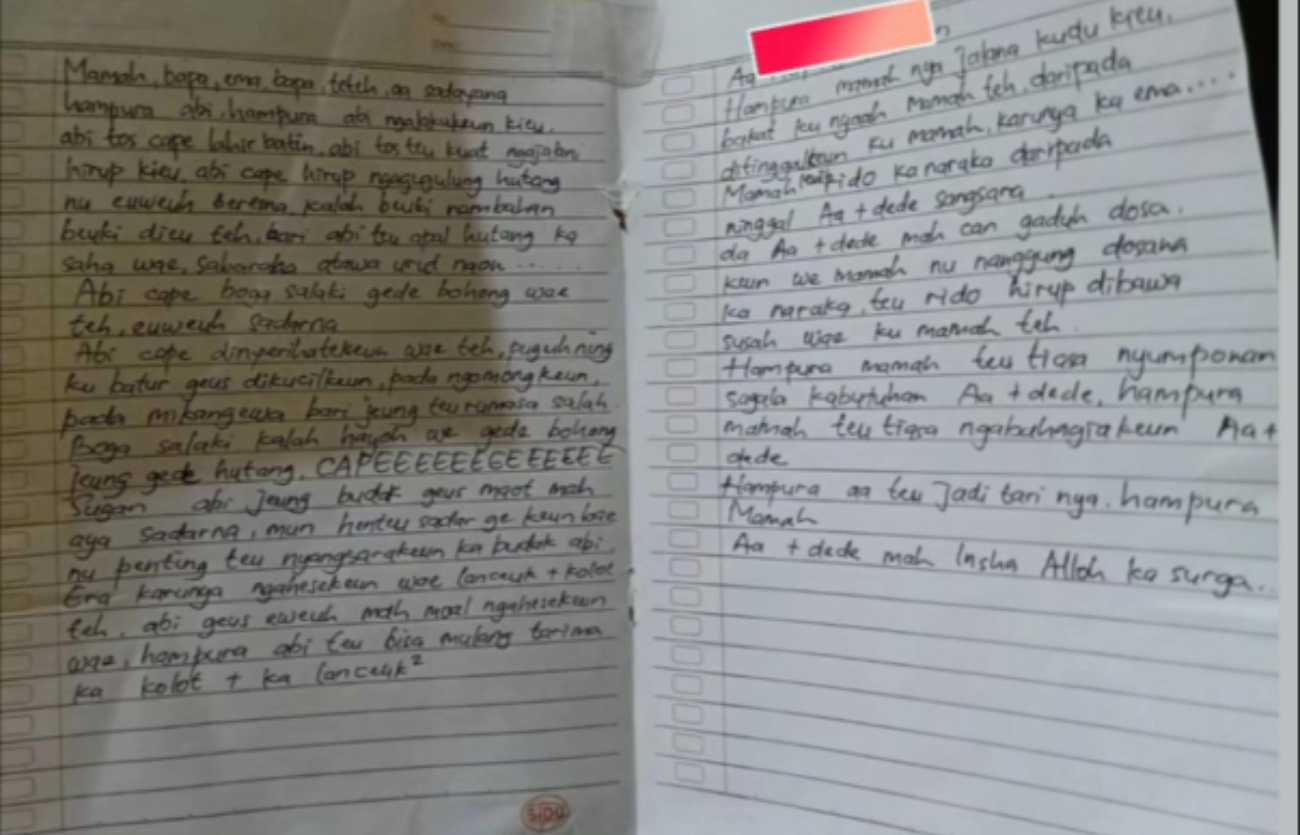 Mamah, bapa, ema, bapa, teteh, aa sadayana
hampura abi, hampura abi ngalakukeun kieu.
abi tos cape lahir batin, abi tos teu kuat ngajalani
hirup kieu, abi cape hirup ngagugulung hutang
nu euweuh berema, kalah beuki nambahan
beuki dieu teh, bari abi teu apal hutang ka
saha wae, sabaraha atawa urid naon ......
Abi cape boga salaki gede bohong wae
teh, euweuh sadarna
Abi cape dinyerihatekeun wae teh, puguh ning
ku batur geus dikucilkeun, pada ngomongkeun,
pada mikangewa bari jeung teu rumasa salah.
Boga salaki kalah hayoh we gede bohong
jeung gede hutang. CAPEEEEEEEEEEEEEE
Sugan abi jeung budak geus maot mah
aya sadarna, mun henteu sadar ge keun bae
nu penting teu nyangsarakeun ka budak abi
Era karunya ngahesekeun wae lanceuk + kolot
teh, abi geus eweuh mah moal ngahesekeun
wae, hampura abi teu bisa mulang tarima
ka kolot + ka lanceuk²
Aa
Hampura mamah nya jalana kudu kieu.
bakat ku nyaah mamah teh, daripada
ditinggalkeun ku mamah, karunya ka ema....
Mamah rido ka naraka daripada
ninggal Aa + dede sangsara
da Aa + dede mah can gaduh dosa.
keun we mamah nu nanggung dosana
ka naraka, teu rido hirup dibawa
susah wae ku mamah teh.
Hampura mamah teu tiasa nyumponan
sagala kabutuhan Aa + dede, hampura
mamah teu tiasa ngabahagiakeun Aa +
dede
Hampura aa teu jadi tari nya. hampura
Mamah
Aa + dede mah Insha Alloh ka surga..
SIDU